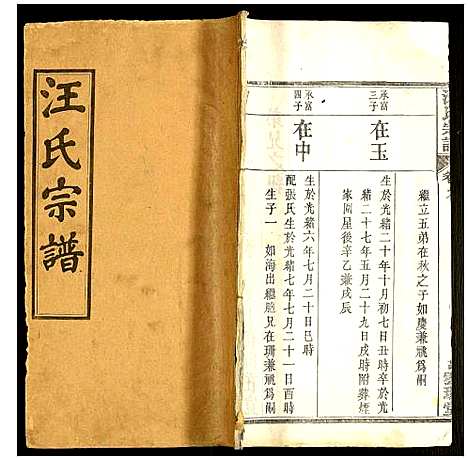 汪氏宗譜
繼立五弟在秋之子如慶兼祧爲嗣
承富三子
在玉
生於光緒二十年十月初七日丑時卒於光
緒二十七年五月二十九日戌時附葬煙
家岡星後辛乙兼戌辰
承富四子
在中
生於光緒六年七月二十日巳時
配張氏生於光緒七年七月二十一日酉時
生子一 如海出繼胞兄在珊兼祧爲嗣